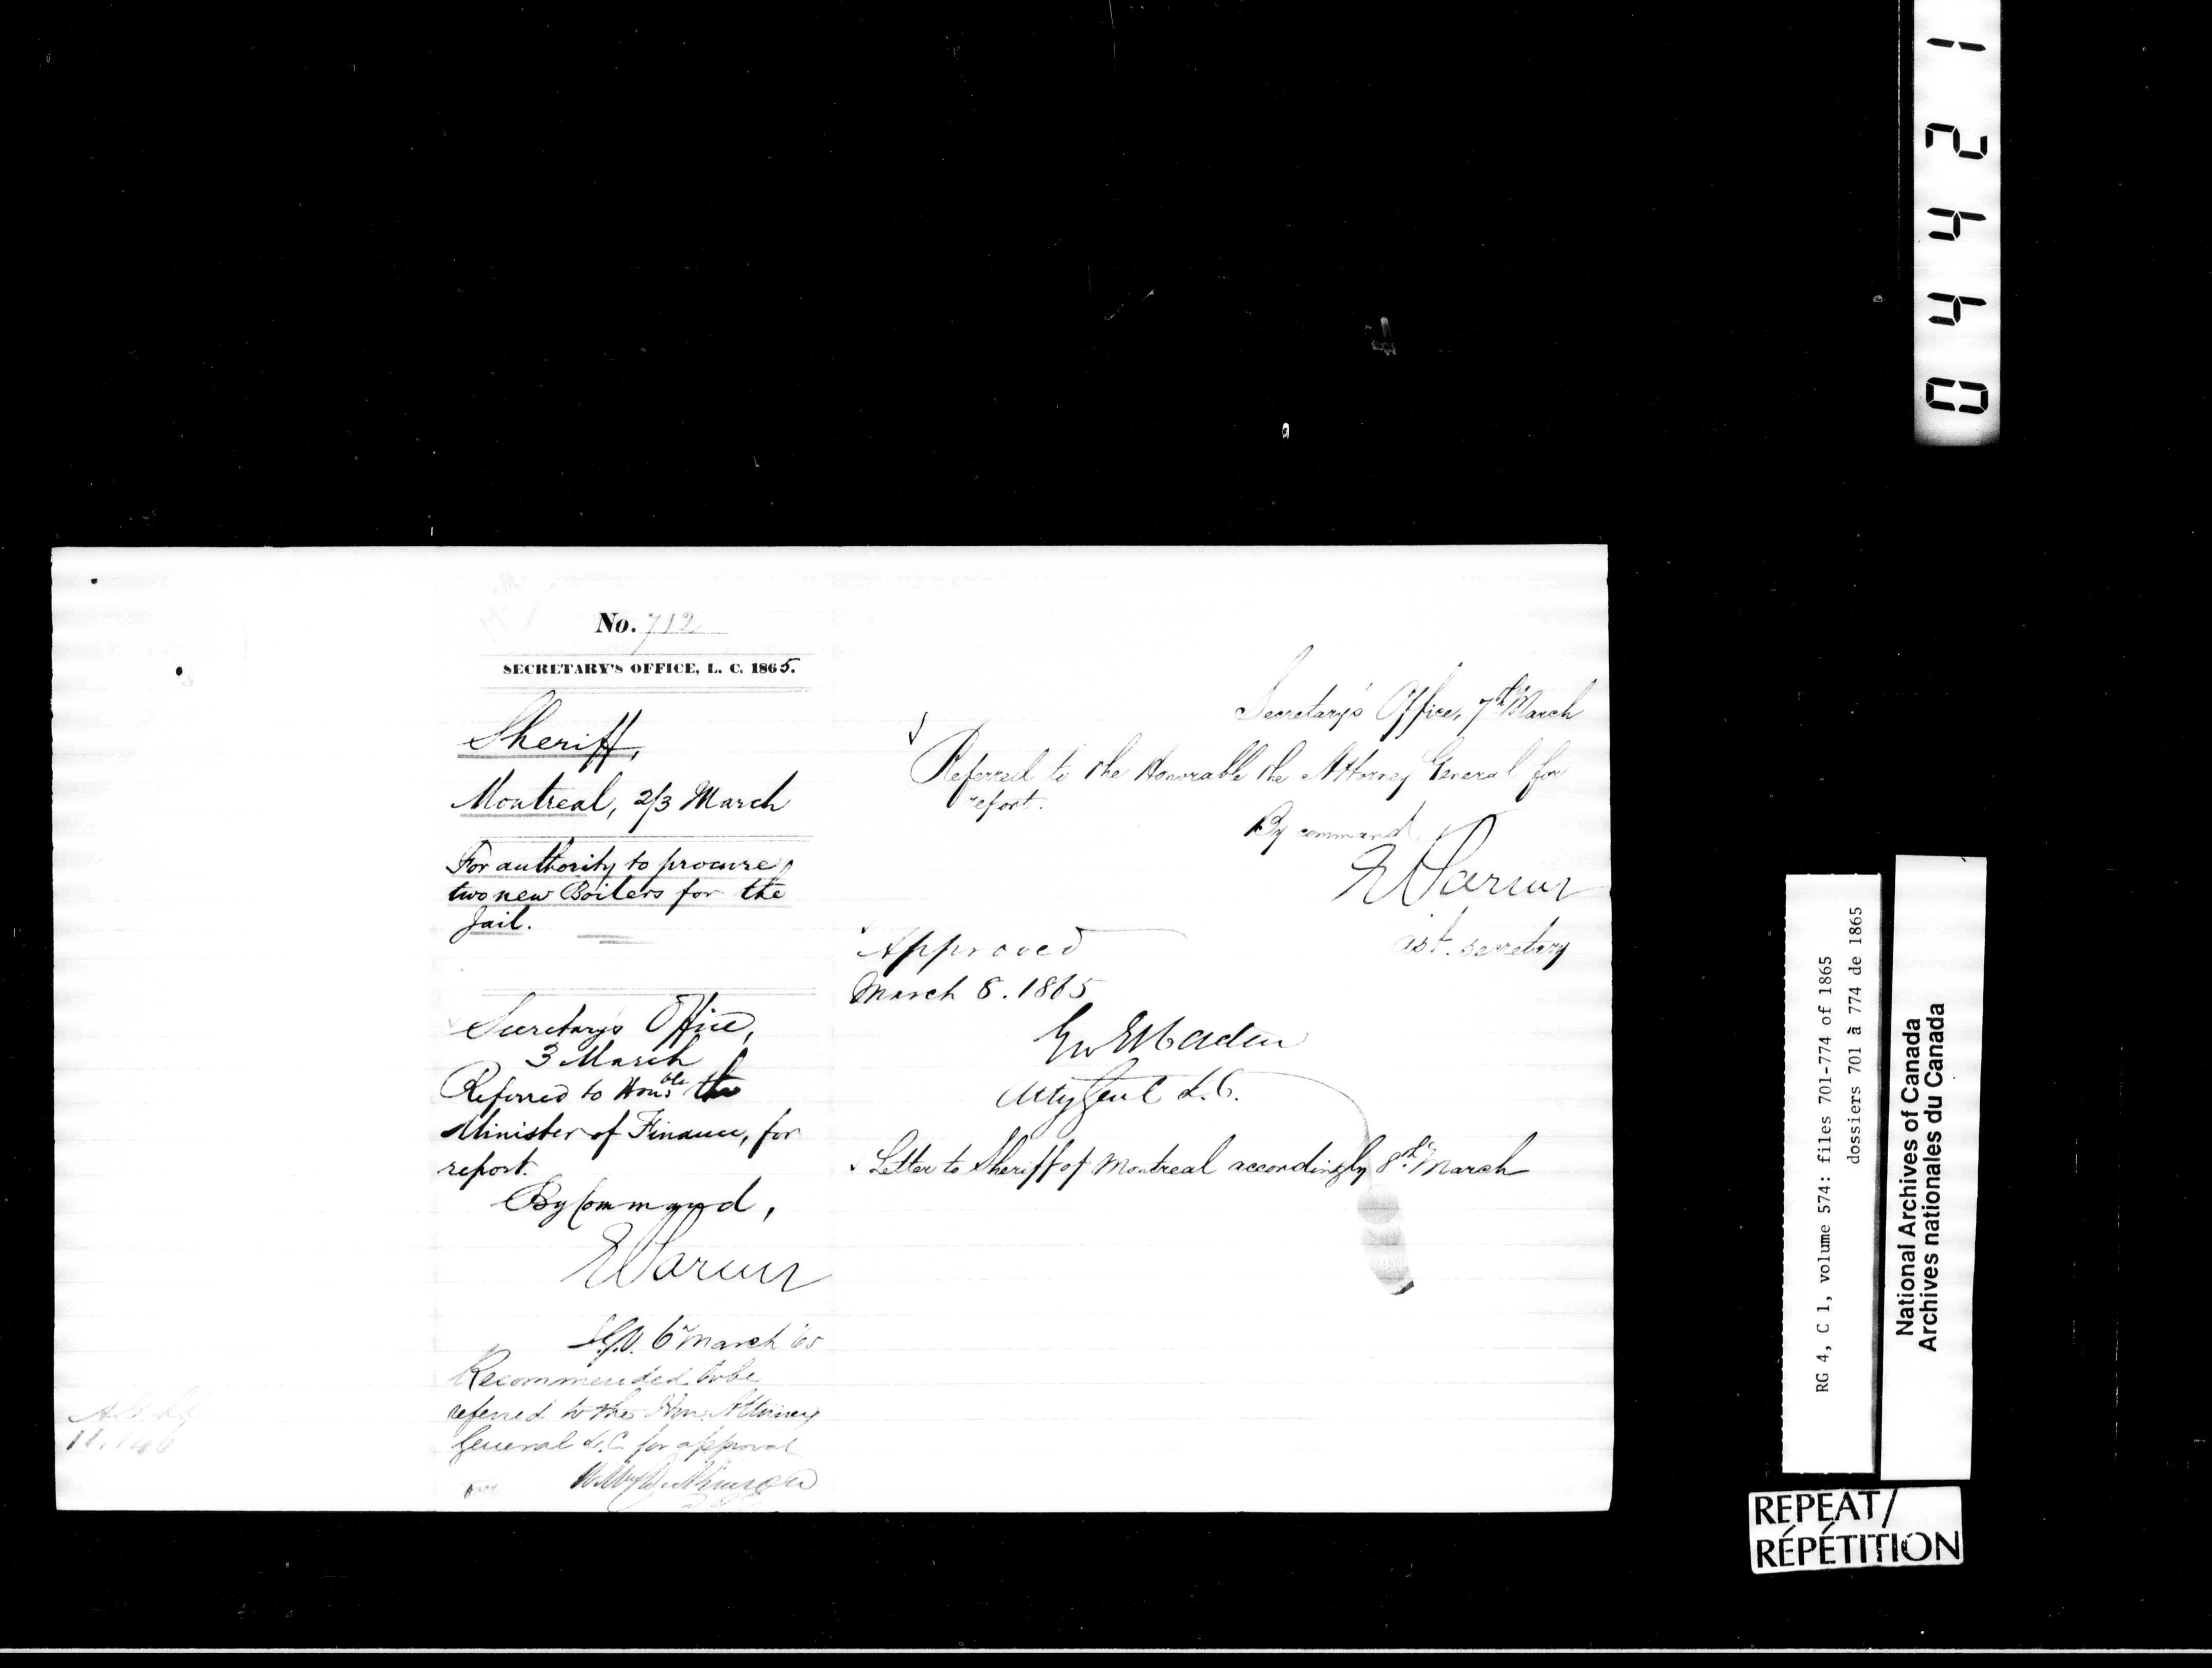 No. 712
SECRETARY'S OFFICE, L. C. 1865.
Sheriff,
Montreal, 2/3 March
For authority to procure
two new Boilers for the
Jail.
Secretary's Office,
3 March
Referred to Honble the
Minister of Finance, for
report.
By Command,
6th March 65
Recommended to be
referred to the Hon. Attorney
General L.C. for approval
Secretary's Office, 7th March
Referred to the Honorable the Attorney General for
report.
By command
asst. secretary
Approved
March 8. 1865
Atty Genl L.C.
Letter to Sheriff of Montreal accordingly 8th March
12440
RG 4, C 1, volume 574: files 701-774 of 1865
dossiers 701 à 774 de 1865
National Archives of Canada
Archives nationales du Canada
REPEAT/
RÉPÉTITION